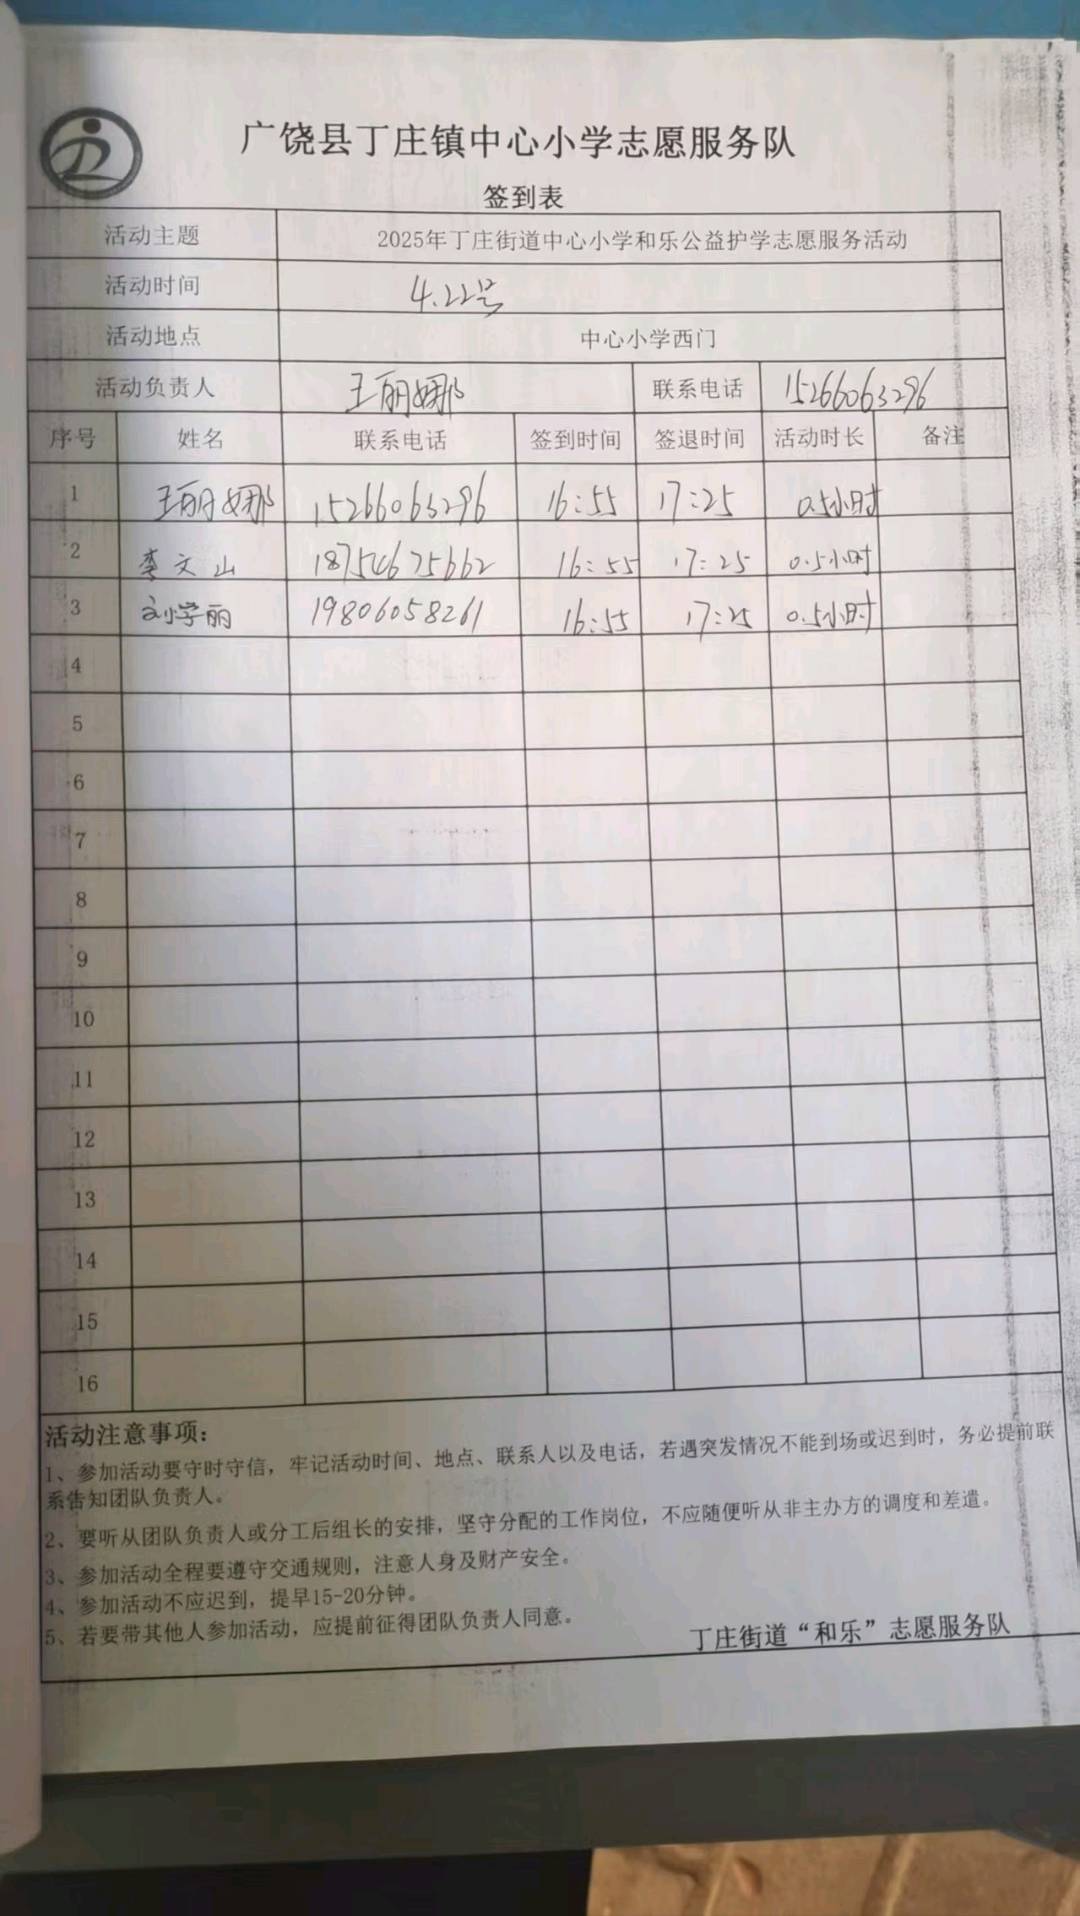 广饶县丁庄镇中心小学志愿服务队
签到表
活动主题 2025年丁庄街道中心小学和乐公益护学志愿服务活动
活动时间 4.22号
活动地点 中心小学西门
活动负责人 王丽娜 联系电话 15266063296
序号 姓名 联系电话 签到时间 签退时间 活动时长 备注
1 王丽娜 15266063296 16:55 17:25 0.5小时
2 李文山 18754675662 16:55 17:25 0.5小时
3 刘学丽 19806058261 16:55 17:25 0.5小时
4
5
6
7
8
9
10
11
12
13
14
15
16
活动注意事项：
1、参加活动要守时守信，牢记活动时间、地点、联系人以及电话，若遇突发情况不能到场或迟到时，务必提前联
系告知团队负责人。
2、要听从团队负责人或分工后组长的安排，坚守分配的工作岗位，不应随便听从非主办方的调度和差遣。
3、参加活动全程要遵守交通规则，注意人身及财产安全。
4、参加活动不应迟到，提早15-20分钟。
5、若要带其他人参加活动，应提前征得团队负责人同意。
丁庄街道“和乐”志愿服务队